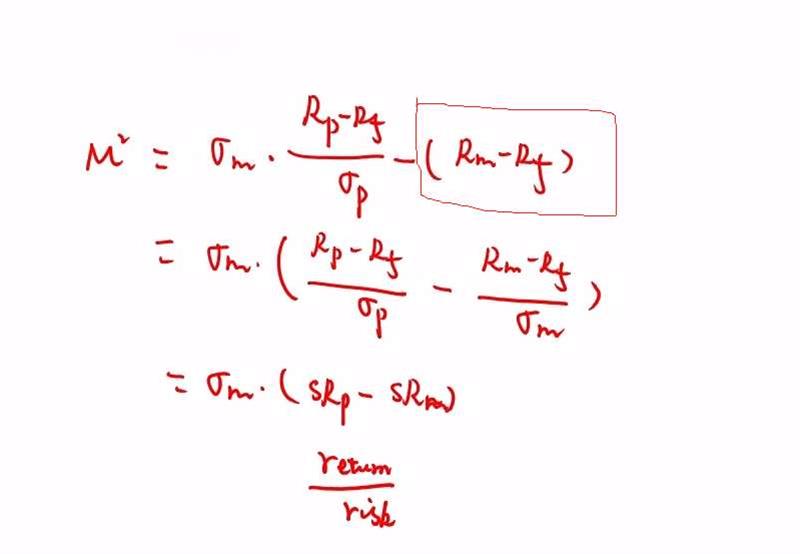 M² = σm · (Rp-Rf)/σp - (Rm-Rf)
= σm · ( (Rp-Rf)/σp - (Rm-Rf)/σm )
= σm · (SRp - SRm)
return
risk